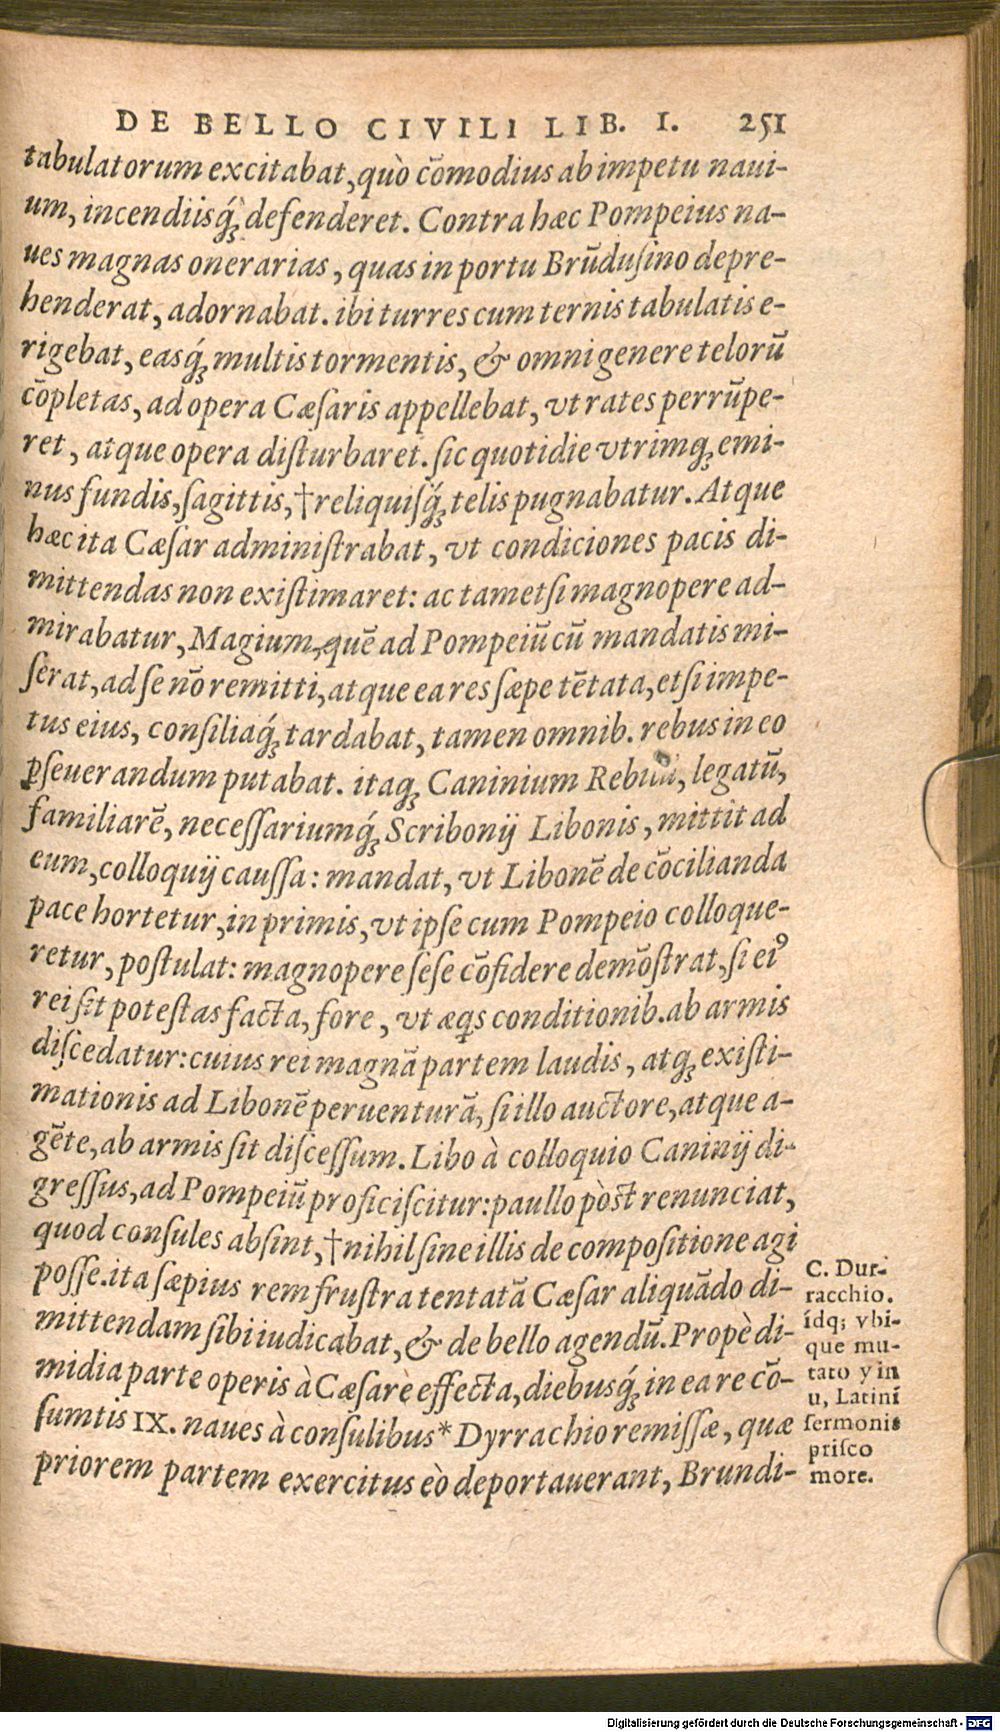 DE BELLO CIVILI LIB. I. 251
tabulatorum excitabat, quò cõmodius ab impetu naui-
um, incendiisq́; defenderet. Contra hæc Pompeius na-
ues magnas onerarias, quas in portu Brũdusino depre-
henderat, adornabat. ibi turres cum ternis tabulatis e-
rigebat, easq́; multis tormentis, & omni genere telorũ
cõpletas, ad opera Cæsaris appellebat, vt rates perrũpe-
ret, atque opera disturbaret. sic quotidie vtrimq; emi-
nus fundis, sagittis, †reliquisq́; telis pugnabatur. Atque
hæc ita Cæsar administrabat, vt condiciones pacis di-
mittendas non existimaret: ac tametsi magnopere ad-
mirabatur, Magium, quẽ ad Pompeiũ cũ mandatis mi-
serat, ad se nõ remitti, atque ea res sæpe tẽtata, etsi impe-
tus eius, consiliaq́; tardabat, tamen omnib. rebus in eo
ꝑseuerandum putabat. itaq; Caninium legatũ,
familiarẽ, necessariumq́; Scribonij Libonis, mittit ad
eum, colloquij caussa: mandat, vt Libonẽ de cõcilianda
pace hortetur, in primis, vt ipse cum Pompeio colloque-
retur, postulat: magnopere sese cõfidere demõstrat, si eiꝰ
rei sit potestas facta, fore, vt æqs conditionib. ab armis
discedatur: cuius rei magnã partem laudis, atq; existi-
mationis ad Libonẽ peruenturã, si illo auctore, atque a-
gẽte, ab armis sit discessum. Libo à colloquio Caninij di-
gressus, ad Pompeiũ proficiscitur: paullo pòst renunciat,
quod consules absint, †nihil sine illis de compositione agi
posse. ita sæpius rem frustra tentatã Cæsar aliquãdo di-
mittendam sibi iudicabat, & de bello agendũ. Propè di-
midia parte operis à Cæsare effecta, diebusq́; in ea re cõ-
sumtis IX. naues à consulibus* Dyrrachio remissæ, quæ
priorem partem exercitus eò deportauerant, Brundi-
C. Dur-
racchio.
ídq; vbi-
que mu-
tato y in
u, Latini
sermonis
prisco
more.
Digitalisierung gefördert durch die Deutsche Forschungsgemeinschaft - DFG